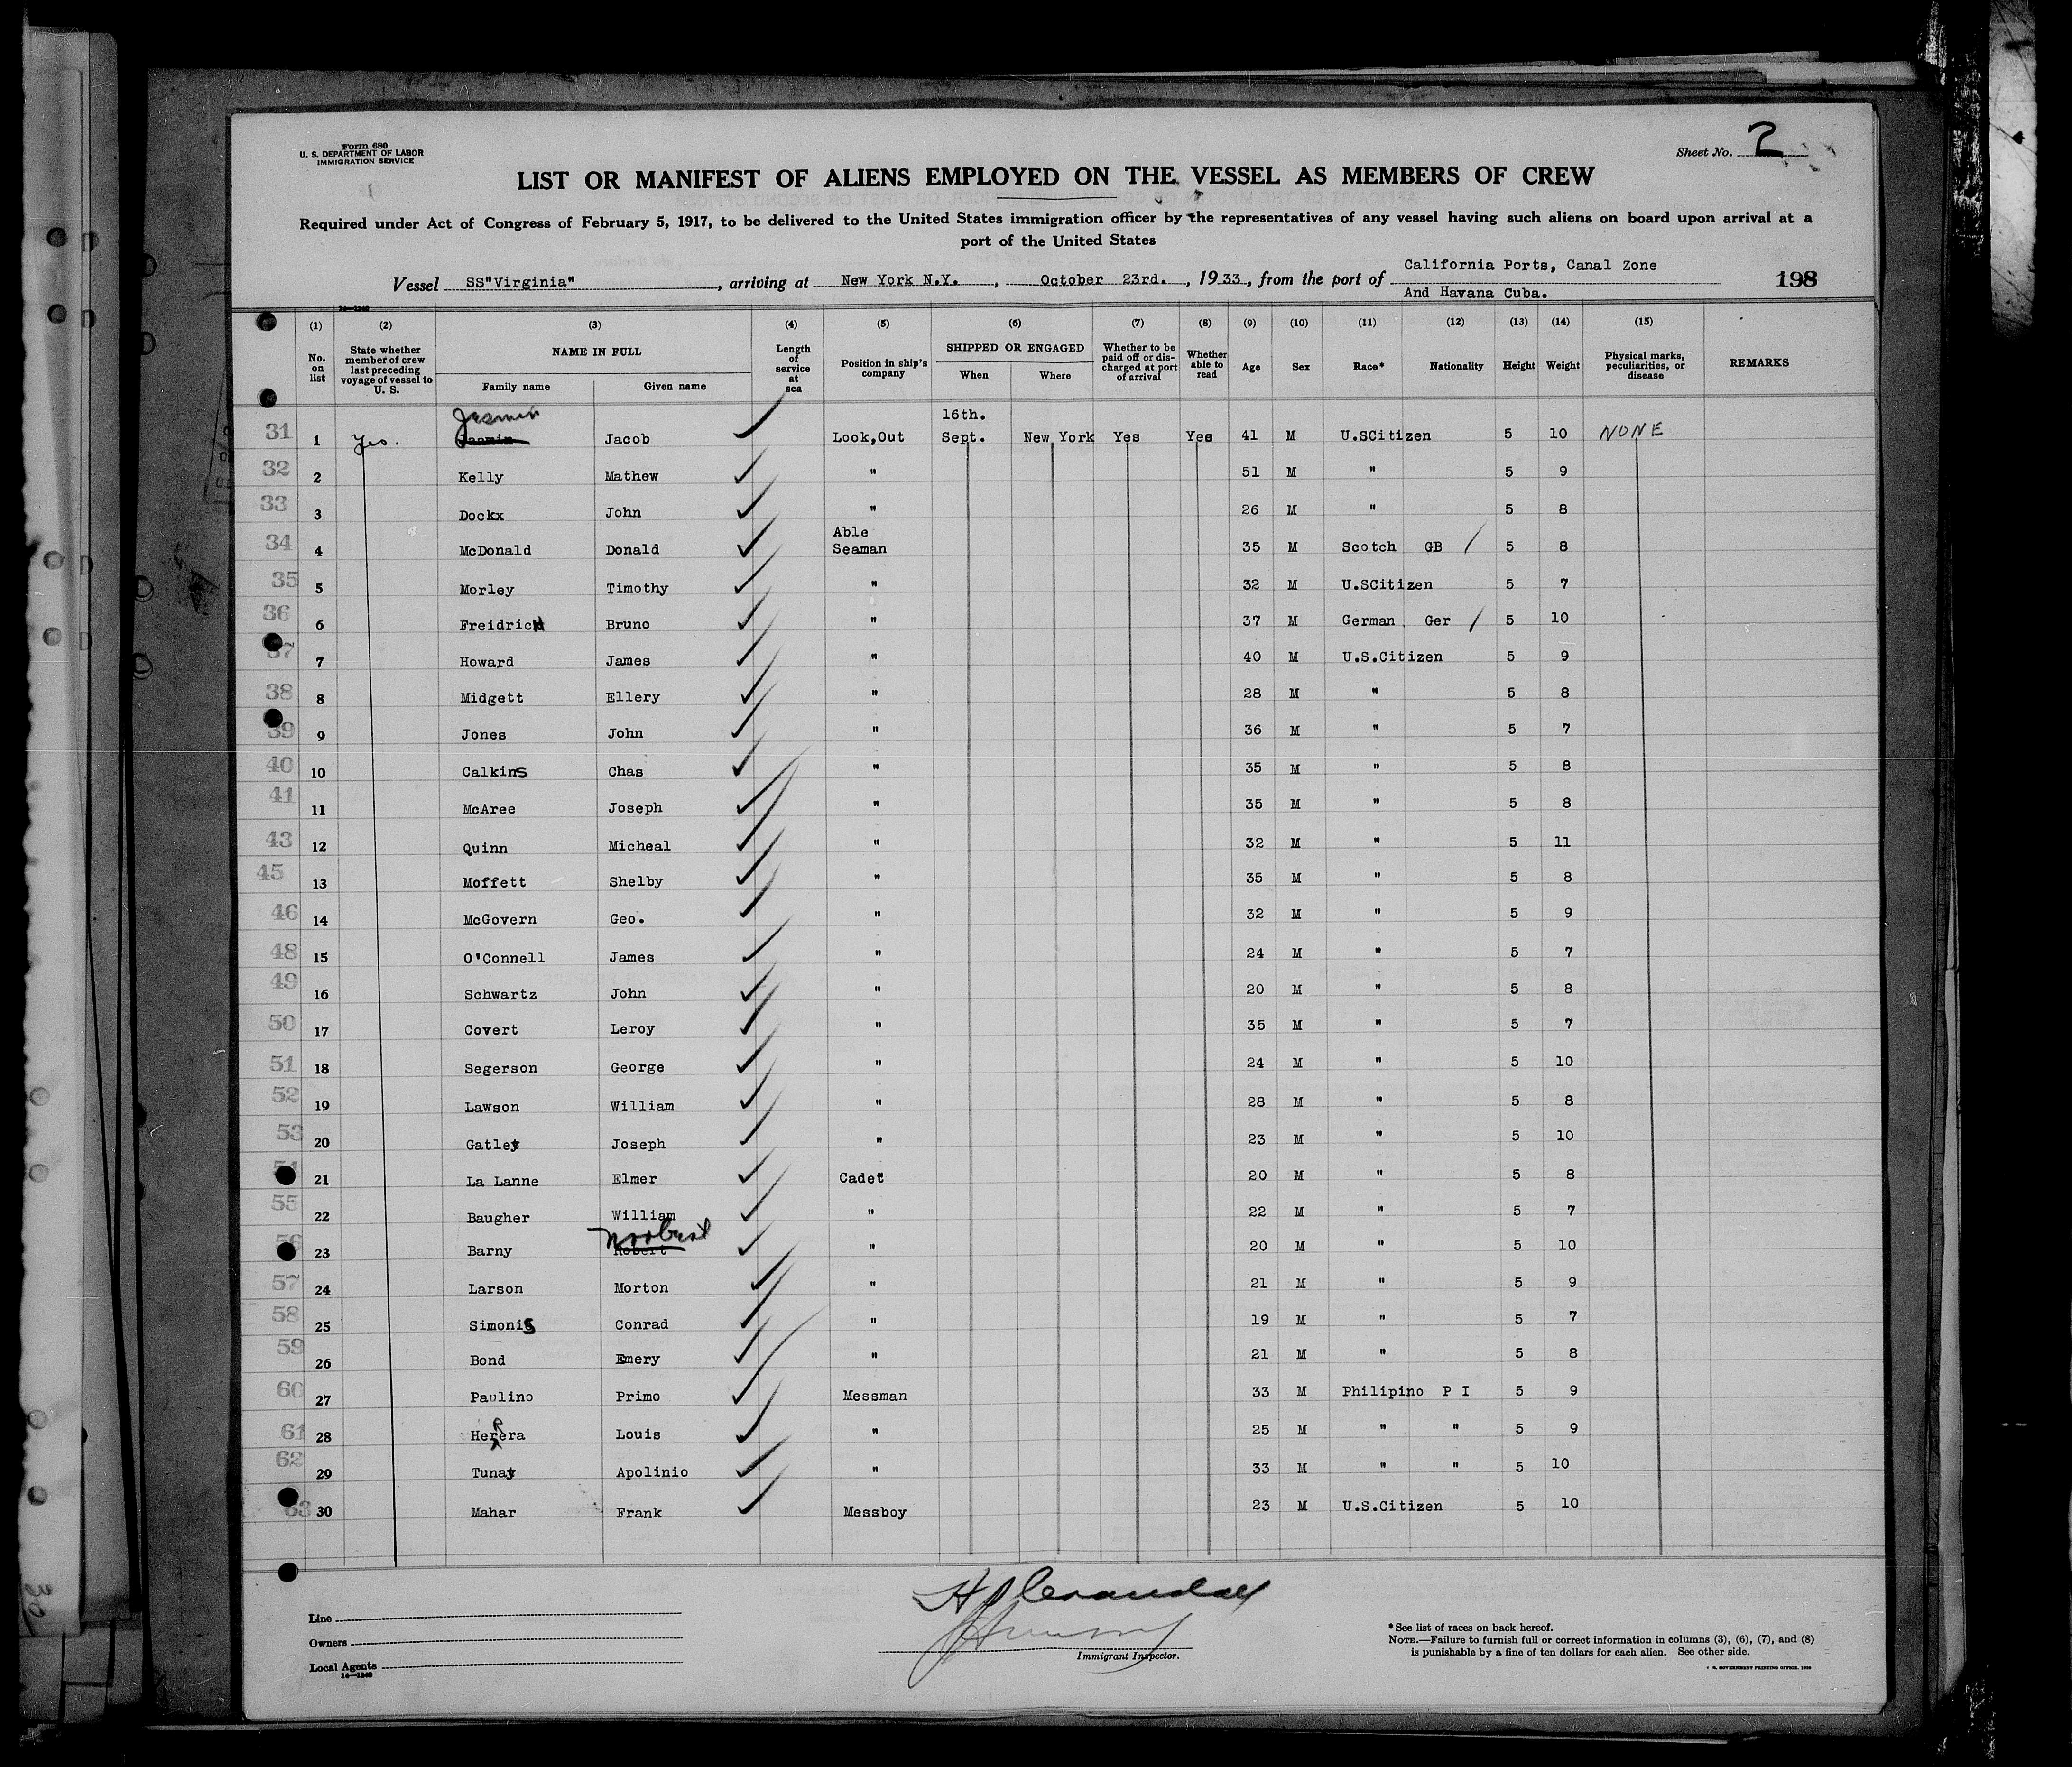 Form 680
U. S. DEPARTMENT OF LABOR
IMMIGRATION SERVICE
Sheet No. 2
LIST OR MANIFEST OF ALIENS EMPLOYED ON THE VESSEL AS MEMBERS OF CREW
Required under Act of Congress of February 5, 1917, to be delivered to the United States immigration officer by the representatives of any vessel having such aliens on board upon arrival at a
port of the United States
Vessel SS"Virginia", arriving at New York N.Y., October 23rd., 1933, from the port of California Ports, Canal Zone
And Havana Cuba.
198
14—1240
(1) (2) (3) (4) (5) (6) (7) (8) (9) (10) (11) (12) (13) (14) (15)
No. on list State whether member of crew last preceding voyage of vessel to U. S. NAME IN FULL Family name Given name Length of service at sea Position in ship's company SHIPPED OR ENGAGED When Where Whether to be paid off or discharged at port of arrival Whether able to read Age Sex Race* Nationality Height Weight Physical marks, peculiarities, or disease REMARKS
Jesmin 16th.
31 1 Yes. Jasmin Jacob Look,Out Sept. New York Yes Yes 41 M U.SCitizen 5 10 NONE
32 2 Kelly Mathew " 51 M " 5 9
33 3 Dockx John " 26 M " 5 8
34 4 McDonald Donald Able Seaman 35 M Scotch GB / 5 8
35 5 Morley Timothy " 32 M U.SCitizen 5 7
36 6 FreidricH Bruno " 37 M German Ger / 5 10
37 7 Howard James " 40 M U.S.Citizen 5 9
38 8 Midgett Ellery " 28 M " 5 8
39 9 Jones John " 36 M " 5 7
40 10 CalkinS Chas " 35 M " 5 8
41 11 McAree Joseph " 35 M " 5 8
43 12 Quinn Micheal " 32 M " 5 11
45 13 Moffett Shelby " 35 M " 5 8
46 14 McGovern Geo. " 32 M " 5 9
48 15 O'Connell James " 24 M " 5 7
49 16 Schwartz John " 20 M " 5 8
50 17 Covert Leroy " 35 M " 5 7
51 18 Segerson George " 24 M " 5 10
52 19 Lawson William " 28 M " 5 8
53 20 Gatley Joseph " 23 M " 5 10
54 21 La Lanne Elmer Cadet 20 M " 5 8
55 22 Baugher William " 22 M " 5 7
Norbert
56 23 Barny Robert " 20 M " 5 10
57 24 Larson Morton " 21 M " 5 9
58 25 SimoniS Conrad " 19 M " 5 7
59 26 Bond Emery " 21 M " 5 8
60 27 Paulino Primo Messman 33 M Philipino P I 5 9
61 28 Herrera Louis " 25 M " " 5 9
62 29 Tunay Apolinio " 33 M " " 5 10
63 30 Mahar Frank Messboy 23 M U.S.Citizen 5 10
Line
Owners
Local Agents
14—1240
Immigrant Inspector.
*See list of races on back hereof.
NOTE.—Failure to furnish full or correct information in columns (3), (6), (7), and (8)
is punishable by a fine of ten dollars for each alien. See other side.